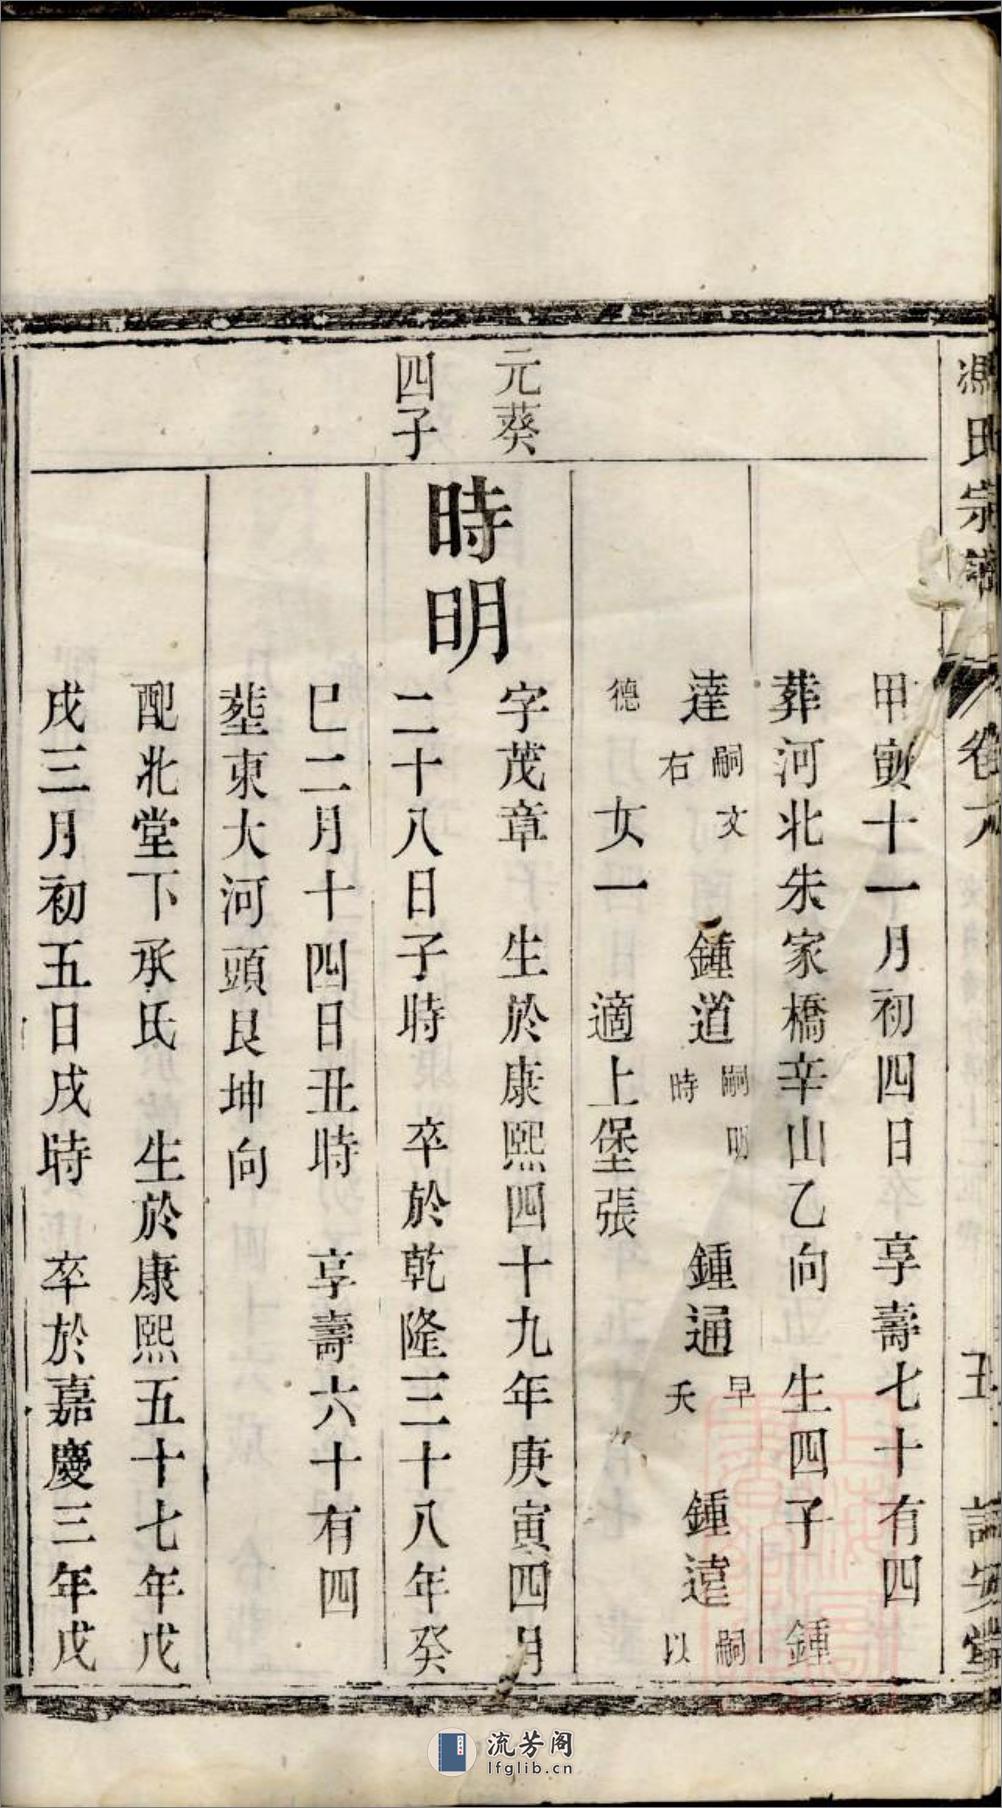 馮氏宗譜 卷六
甲寅十一月初四日 享壽七十有四
葬河北朱家橋辛山乙向 生四子 鍾
達 嗣文右 鍾道 嗣明時 鍾通 早夭 鍾遠 嗣以
德 女一 適上堡張
元葵
四子
時明
字茂章 生於康熙四十九年庚寅四月
二十八日子時 卒於乾隆三十八年癸
巳二月十四日丑時 享壽六十有四
塟東大河頭艮坤向
配北堂下承氏 生於康熙五十七年戊
戌三月初五日戌時 卒於嘉慶三年戊
流芳阁
lfglib.cn